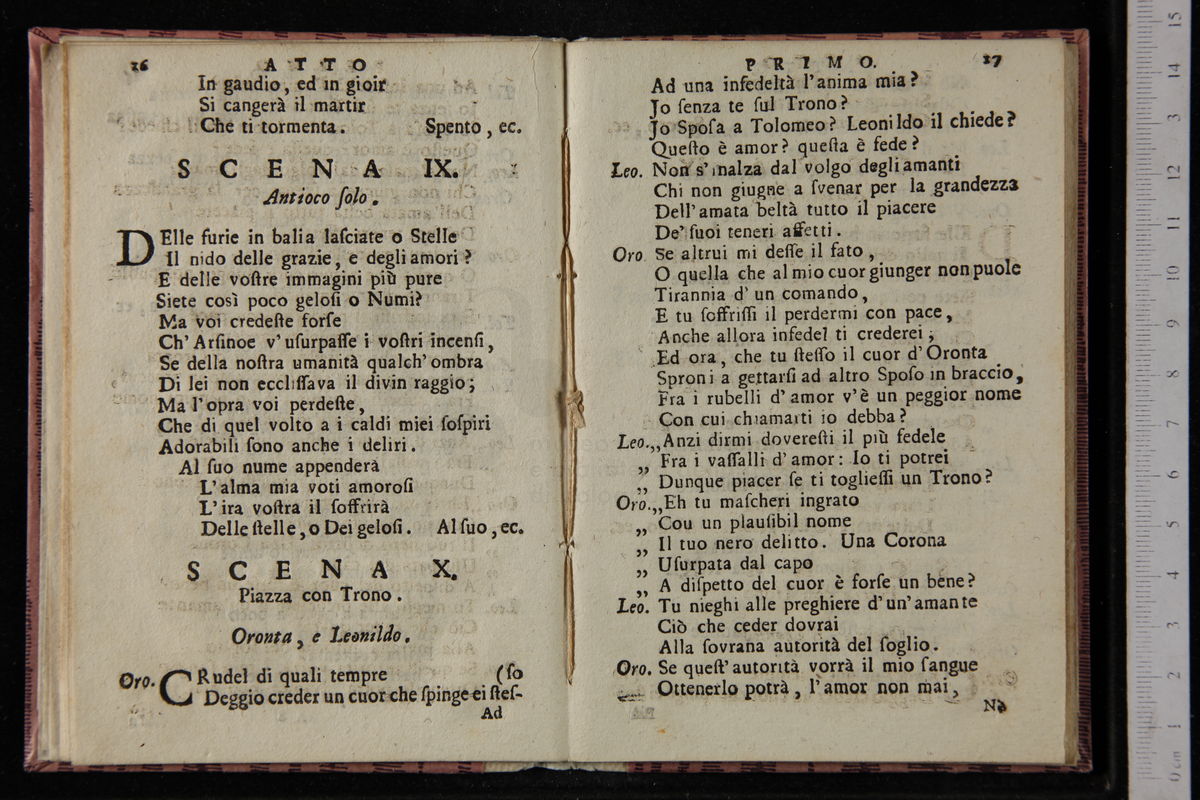 26 ATTO
In gaudio, ed in gioir
Si cangerà il martir
Che ti tormenta. Spento, ec.
SCENA IX.
Antioco ſolo.
DElle furie in balia laſciate o Stelle
Il nido delle grazie, e degli amori?
E delle voſtre immagini più pure
Siete così poco geloſi o Numi?
Ma voi credeſte forſe
Ch' Arſinoe v' uſurpaſſe i voſtri incenſi,
Se della noſtra umanità qualch' ombra
Di lei non eccliſſava il divin raggio;
Ma l'opra voi perdeſte,
Che di quel volto a i caldi miei ſoſpiri
Adorabili ſono anche i deliri.
Al ſuo nume appenderà
L'alma mia voti amoroſi
L'ira voſtra il ſoffrirà
Delle ſtelle, o Dei geloſi. Al ſuo, ec.
SCENA X.
Piazza con Trono.
Oronta, e Leonildo.
Oro. CRudel di quali tempre (ſo
Deggio creder un cuor che ſpinge ei ſteſ-
Ad
PRIMO. 27
Ad una infedeltà l'anima mia?
Jo ſenza te ſul Trono?
Jo Spoſa a Tolomeo? Leonildo il chiede?
Queſto è amor? queſta è fede?
Leo. Non s'inalza dal volgo degli amanti
Chi non giugne a ſvenar per la grandezza
Dell'amata beltà tutto il piacere
De' ſuoi teneri affetti.
Oro. Se altrui mi deſſe il fato,
O quella che al mio cuor giunger non puole
Tirannia d'un comando,
E tu ſoffriſſi il perdermi con pace,
Anche allora infedel ti crederei;
Ed ora, che tu ſteſſo il cuor d'Oronta
Sproni a gettarſi ad altro Spoſo in braccio,
Fra i rubelli d'amor v'è un peggior nome
Con cui chiamarti io debba?
Leo. „Anzi dirmi dovereſti il più fedele
„ Fra i vaſſalli d'amor: Io ti potrei
„ Dunque piacer ſe ti toglieſſi un Trono?
Oro. „Eh tu maſcheri ingrato
„ Cou un plauſibil nome
„ Il tuo nero delitto. Una Corona
„ Uſurpata dal capo
„ A diſpetto del cuor è forſe un bene?
Leo. Tu nieghi alle preghiere d'un'amante
Ciò che ceder dovrai
Alla ſovrana autorità del ſoglio.
Oro. Se queſt'autorità vorrà il mio ſangue
Ottenerlo potrà, l'amor non mai,
Nò
0 cm 1 2 3 4 5 6 7 8 9 10 11 12 13 14 15